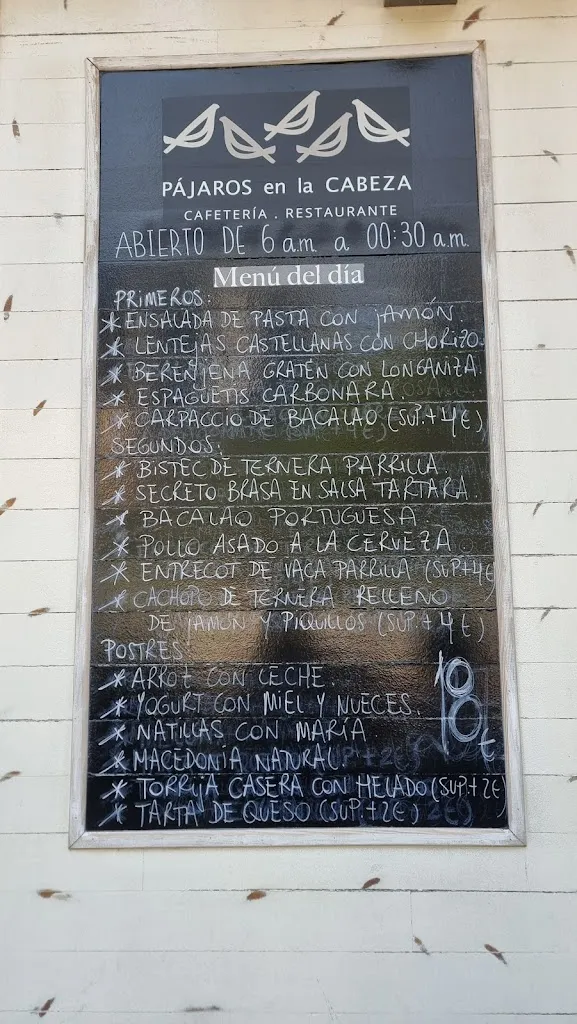 PÁJAROS en la CABEZA
CAFETERÍA . RESTAURANTE
ABIERTO DE 6 a.m. a 00:30 a.m.
Menú del día
PRIMEROS:
* ENSALADA DE PASTA CON JAMÓN.
* LENTEJAS CASTELLANAS CON CHORIZO.
* BERENJENA GRATÉN CON LONGANIZA.
* ESPAGUETIS CARBONARA.
* CARPACCIO DE BACALAO (SUP.+4€)
SEGUNDOS:
* BISTEC DE TERNERA PARRILLA.
* SECRETO BRASA EN SALSA TARTARA.
* BACALAO PORTUGUESA
* POLLO ASADO A LA CERVEZA
* ENTRECOT DE VACA PARRILLA (SUP+4€
* CACHOPO DE TERNERA RELLENO
DE JAMÓN Y PIQUILLOS (SUP.+4€)
POSTRES
* ARROZ CON LECHE.
* YOGURT CON MIEL Y NUECES.
* NATILLAS CON MARÍA
* MACEDONIA NATURAL.
* TORRIJA CASERA CON HELADO (SUP.+2€)
* TARTA DE QUESO (SUP.+2€)
18€